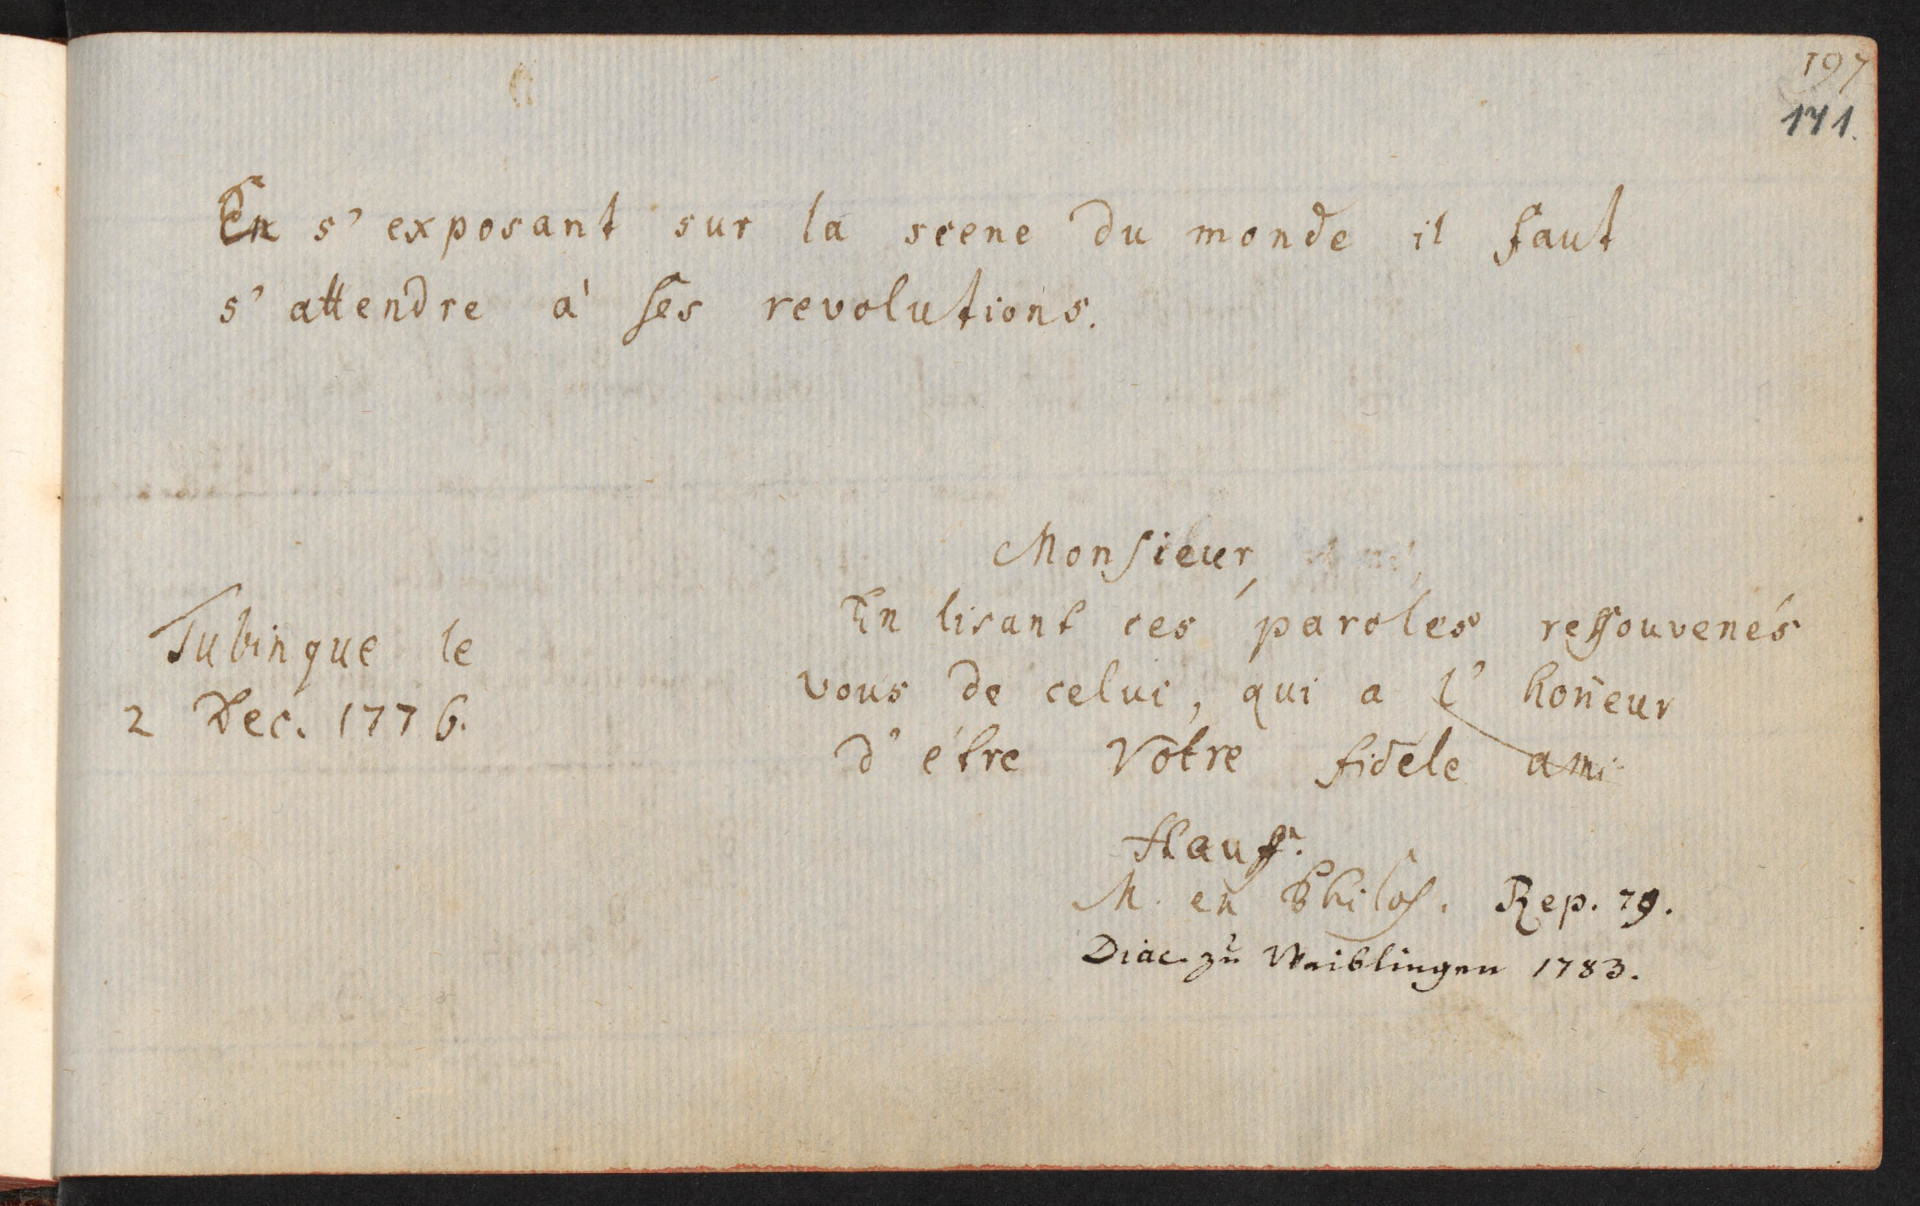 197
171.
En s' exposant sur la scene du monde il faut
s' attendre à ses revolutions.
Monsieur,
En lisant ces paroles ressouvenés
vous de celui, qui a l' hon̄eur
d' étre Vôtre fidele ami
Tubingue le
2 Dec. 1776.
Hauff.
M. en Philos. Rep. 79.
Diac. zu Waiblingen 1783.